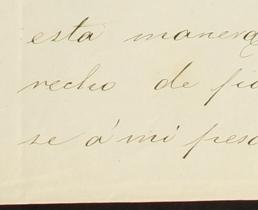 esta manera
recho de fi
se á mi pesa